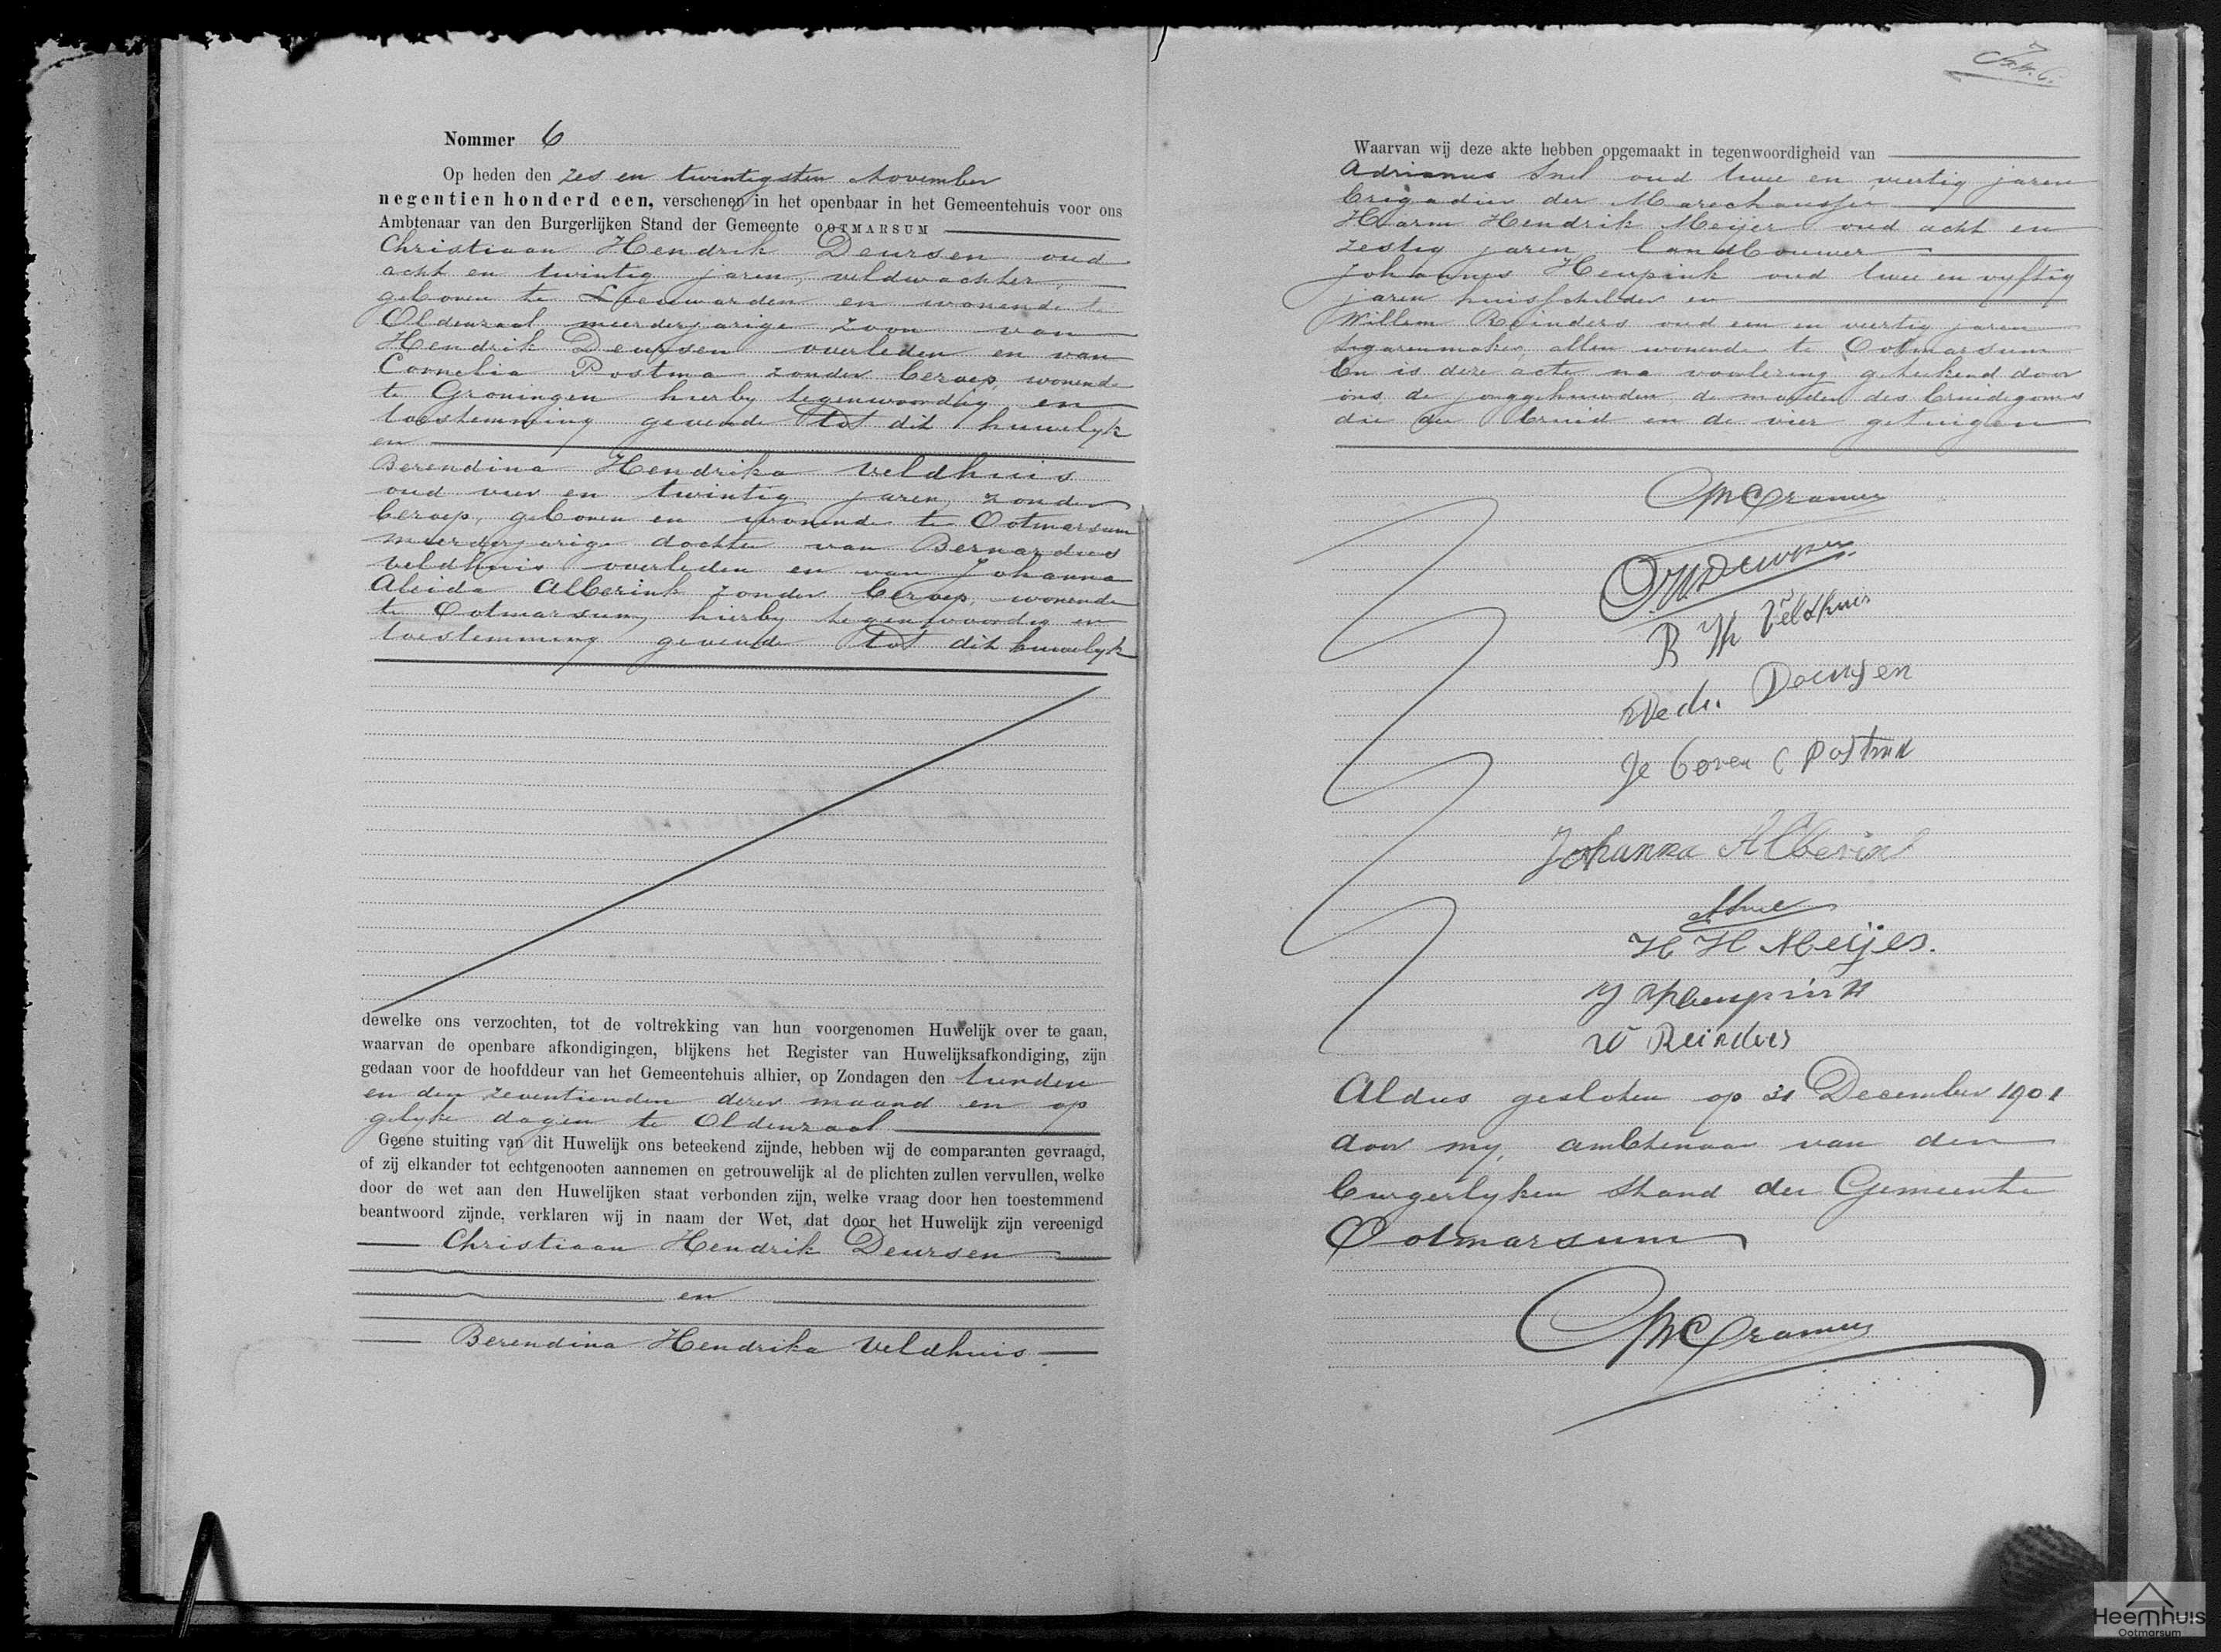 Nommer 6
Op heden den zes en twintigsten November
negentien honderd een, verschenen in het openbaar in het Gemeentehuis voor ons
Ambtenaar van den Burgerlijken Stand der Gemeente OOTMARSUM
Christiaan Hendrik Deursen oud
acht en twintig jaren, veldwachter,
geboren te Leeuwarden en wonende te
Oldenzaal meerderjarige zoon van
Hendrik Deursen overleden en van
Cornelia Postma zonder beroep, wonende
te Groningen hierby tegenwoordig en
toestemming gevende tot dit huwelyk
en
Berendina Hendrika Veldhuis
oud vier en twintig jaren, zonder
beroep, geboren en wonende te Ootmarsum
meerderjarige dochter van Bernardus
Veldhuis overleden en van Johanna
Aleida Alberink zonder beroep, wonende
te Ootmarsum, hierby tegenwoordig en
toestemming gevende tot dit huwelyk
dewelke ons verzochten, tot de voltrekking van hun voorgenomen Huwelijk over te gaan,
waarvan de openbare afkondigingen, blijkens het Register van Huwelijksafkondiging, zijn
gedaan voor de hoofddeur van het Gemeentehuis alhier, op Zondagen den tienden
en den zeventienden dezer maand en op
gelyke dagen te Oldenzaal
Geene stuiting van dit Huwelijk ons beteekend zijnde, hebben wij de comparanten gevraagd,
of zij elkander tot echtgenooten aannemen en getrouwelijk al de plichten zullen vervullen, welke
door de wet aan den Huwelijken staat verbonden zijn, welke vraag door hen toestemmend
beantwoord zijnde, verklaren wij in naam der Wet, dat door het Huwelijk zijn vereenigd
Christiaan Hendrik Deursen
en
Berendina Hendrika Veldhuis
Waarvan wij deze akte hebben opgemaakt in tegenwoordigheid van
Adrianus Snel oud twee en veertig jaren
brigadier der Marechaussee
Harm Hendrik Meijer oud acht en
zestig jaren, landbouwer
Johannes Heupink oud twee en vyftig
jaren huisschilder en
Willem Reinders oud een en veertig jaren
sigarenmaker, allen wonende te Ootmarsum
En is deze acte na voorlezing geteekend door
ons, de jonggehuwden, de moeder des bruidegoms
die der bruid en de vier getuigen
Cramer
CH Deursen
B H Veldhuis
Wed. Deursen
Ge boren C Postma
Johanna Alberink
Snel
H H Meijer.
J Heupink
W Reinders
Aldus gesloten op 31 December 1901
door my, ambtenaar van den
burgerlyken stand der Gemeente
Ootmarsum
Cramer
Heemhuis
Ootmarsum